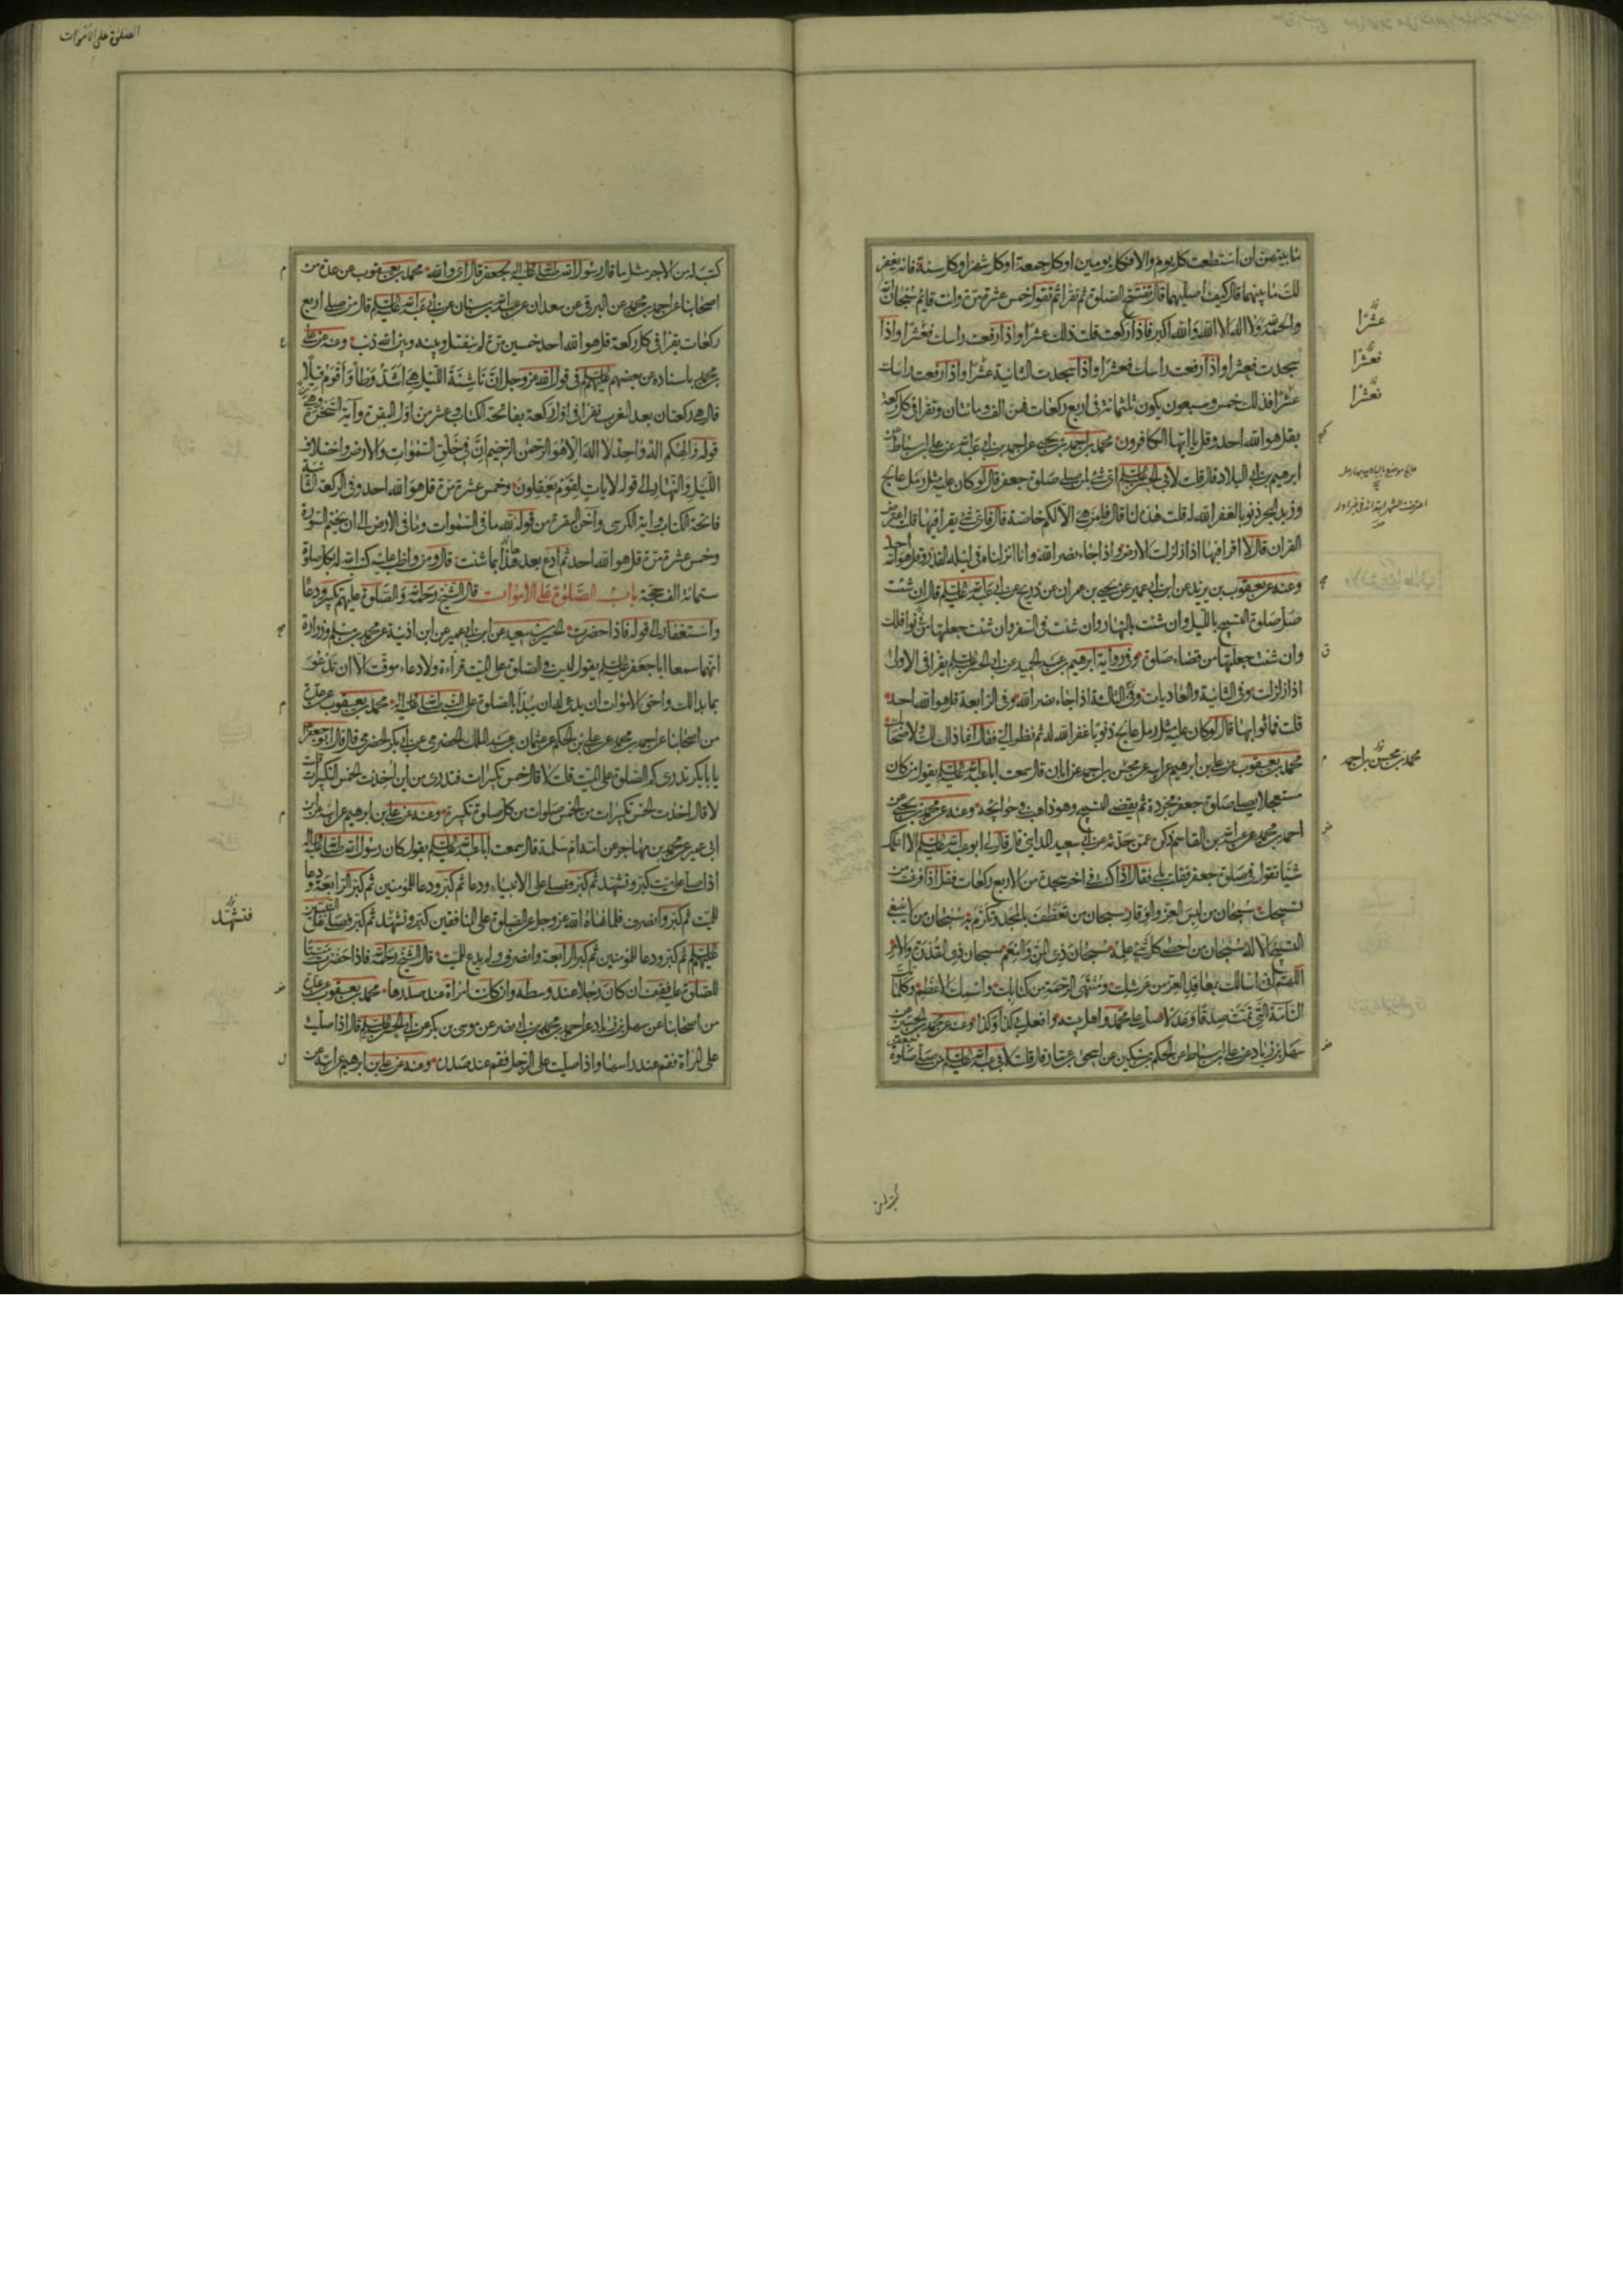 ما بينهن ان استطعت كل يوم والا فكل يومين او كل جمعة او كل شهر او كل سنة فانه يغفر
لك ما بينهما قال كيف اصليهما قال تفتتح الصلوة ثم تقرا ثم تقول خمس عشرة مرة وانت قائم سبحان الله
والحمد لله ولا اله الا الله والله اكبر فاذا ركعت قلت ذلك عشرا واذا رفعت راسك فعشرا واذا
سجدت فعشرا واذا رفعت راسك فعشرا واذا سجدت الثانية عشرا واذا رفعت راسك
عشرا فذلك خمس وسبعون يكون ثلثمائة في اربع ركعات فهن الف ومائتان وتقرا في كل ركعة
بقل هو الله احد وقل يا ايها الكافرون محمد بن احمد بن يحيى عن احمد بن ابي عبد الله عن علي بن اسباط عن
ابرهيم بن ابي البلاد قال قلت لابي الحسن عليه السلم اي شئ لمن صلى صلوة جعفر قال لو كان عليه مثل رمل عالج
وزبد البحر ذنوبا لغفر الله له قلت هذه لنا قال فلمن هي الا لكم خاصة قال قلت فاي شئ يقرا فيها قلت اعترض
القران قال لا اقرا فيها اذا زلزلت الارض واذا جاء نصر الله وانا انزلناه في ليلة القدر وقل هو الله احد
وعنه عن يعقوب بن يزيد عن ابن ابي عمير عن يحيى بن عمران عن ذريح عن ابي عبد الله عليه السلم قال ان شئت
صل صلوة التسبيح بالليل وان شئت بالنهار وان شئت في السفر وان شئت جعلتها من نوافلك
وان شئت جعلتها من قضاء صلوة وفي رواية ابرهيم بن عبد الحميد عن ابي الحسن عليه السلم يقرا في الاولى
اذا زلزلت وفي الثانية والعاديات وفي الثالثة اذا جاء نصر الله وفي الرابعة قل هو الله احد
قلت فما ثوابها قال لو كان عليه مثل رمل عالج ذنوبا غفر الله له ثم نظر الي فقال انما ذلك لك ولاصحابك
محمد بن يعقوب عن علي بن ابرهيم عن ابيه عن محسن بن احمد عن ابان قال سمعت ابا عبد الله عليه السلم يقول من كان
مستعجلا يصلي صلوة جعفر مجردة ثم يقضي التسبيح وهو ذاهب في حوائجه وعنه عن محمد بن يحيى عن
احمد بن محمد عن عبد الله بن القاسم ذكره عمن حدثه عن ابي سعيد المدايني قال قال لي ابو عبد الله عليه السلم الا اعلمك
شيئا تقوله في صلوة جعفر فقلت بلى فقال اذا كنت في اخر سجدة من الاربع ركعات فقل اذا فرغت من
تسبيحك سبحان من لبس العز والوقار سبحان من تعطف بالمجد وتكرم به سبحان من لا ينبغي
التسبيح الا له سبحان من احصى كل شئ علمه سبحان ذي المن والنعم سبحان ذي القدرة والامر
اللهم اني اسالك بمعاقد العز من عرشك ومنتهى الرحمة من كتابك واسمك الاعظم وكلماتك
التامة التي تمت صدقا وعدلا صل على محمد واهل بيته وافعل بي كذا وكذا وعنه عن محمد بن الحسين عن
سهل بن زياد عن علي بن اسباط عن الحكم بن مسكين عن اسحق بن عمار قال قلت لابي عبد الله عليه السلم من صلى صلوة جعفر
عشرا
فعشرا
فعشرا
محمد بن محسن بن احمد
الصلوة على الاموات
كتب له من الاجر مثل ما قال رسول الله صلى الله عليه واله لجعفر قال اي والله محمد بن يعقوب عن عدة من
اصحابنا عن احمد بن محمد عن البرقي عن سعدان عن عبد الله بن سنان عن ابي عبد الله عليه السلم قال من صلى اربع
ركعات يقرا في كل ركعة قل هو الله احد خمسين مرة لم ينفتل وبينه وبين الله ذنب وعنه عن علي
بن محمد باسناده عن بعضهم عليهم السلم في قول الله عز وجل ان ناشئة الليل هي اشد وطأ واقوم قيلا
قال هي ركعتان بعد المغرب تقرا في اول ركعة بفاتحة الكتاب وعشر من اول البقرة واية السخرة وهي
قوله والهكم اله واحد لا اله الا هو الرحمن الرحيم ان في خلق السموات والارض واختلاف
الليل والنهار الى قوله لايات لقوم يعقلون وخمس عشرة مرة قل هو الله احد وفي الركعة الثانية
فاتحة الكتاب واية الكرسي واخر البقرة من قوله لله ما في السموات وما في الارض الى ان يختم السورة
وخمس عشرة مرة قل هو الله احد ثم ادع بعد هذا بما شئت قال ومن واظب عليه كتب الله له بكل صلوة
ستمائة الف حجة باب الصلوة على الاموات قال الشيخ رحمه الله والصلوة عليهم تكبير ودعاء
واستغفار الى قوله فاذا حضرت الحسين بن سعيد عن ابن ابي عمير عن ابن اذينة عن محمد بن مسلم وزرارة
انهما سمعا ابا جعفر عليه السلم يقول ليس في الصلوة على الميت قراءة ولا دعاء موقت الا ان تدعو
بما بدا لك واحق الاموات ان يدعى له ان يبدأ بالصلوة على النبي صلى الله عليه واله محمد بن يعقوب عن عدة
من اصحابنا عن احمد بن محمد عن علي بن الحكم عن عثمان بن عبد الملك الحضرمي عن ابي بكر الحضرمي قال قال ابو جعفر
يا با بكر تدري كم الصلوة على الميت قلت لا قال خمس تكبيرات فتدري من اين اخذت الخمس التكبيرات قلت
لا قال اخذت الخمس تكبيرات من الخمس صلوات من كل صلوة تكبيرة وعنه عن علي بن ابرهيم عن ابيه عن ابن
ابي عمير عن محمد بن مهاجر عن امه ام سلمة قال سمعت ابا عبد الله عليه السلم يقول كان رسول الله صلى الله عليه واله
اذا صلى على ميت كبر وتشهد ثم كبر وصلى على الانبياء ودعا ثم كبر ودعا للمؤمنين ثم كبر الرابعة ودعا
للميت ثم كبر وانصرف فلما نهاه الله عز وجل عن الصلوة على المنافقين كبر وتشهد ثم كبر وصلى على النبيين
عليهم السلم ثم كبر ودعا للمؤمنين ثم كبر الرابعة وانصرف ولم يدع للميت قال الشيخ رحمه الله فاذا حضرت ميتا
للصلوة عليه فقف ان كان رجلا عند وسطه وان كانت امراة عند صدرها محمد بن يعقوب عن عدة
من اصحابنا عن سهل بن زياد عن احمد بن محمد بن ابي نصر عن موسى بن بكر عن ابي الحسن عليه السلم قال اذا صليت
على المراة فقم عند راسها واذا صليت على الرجل فقم عند صدره وعنه عن علي بن ابرهيم عن ابيه عن
فتشهد